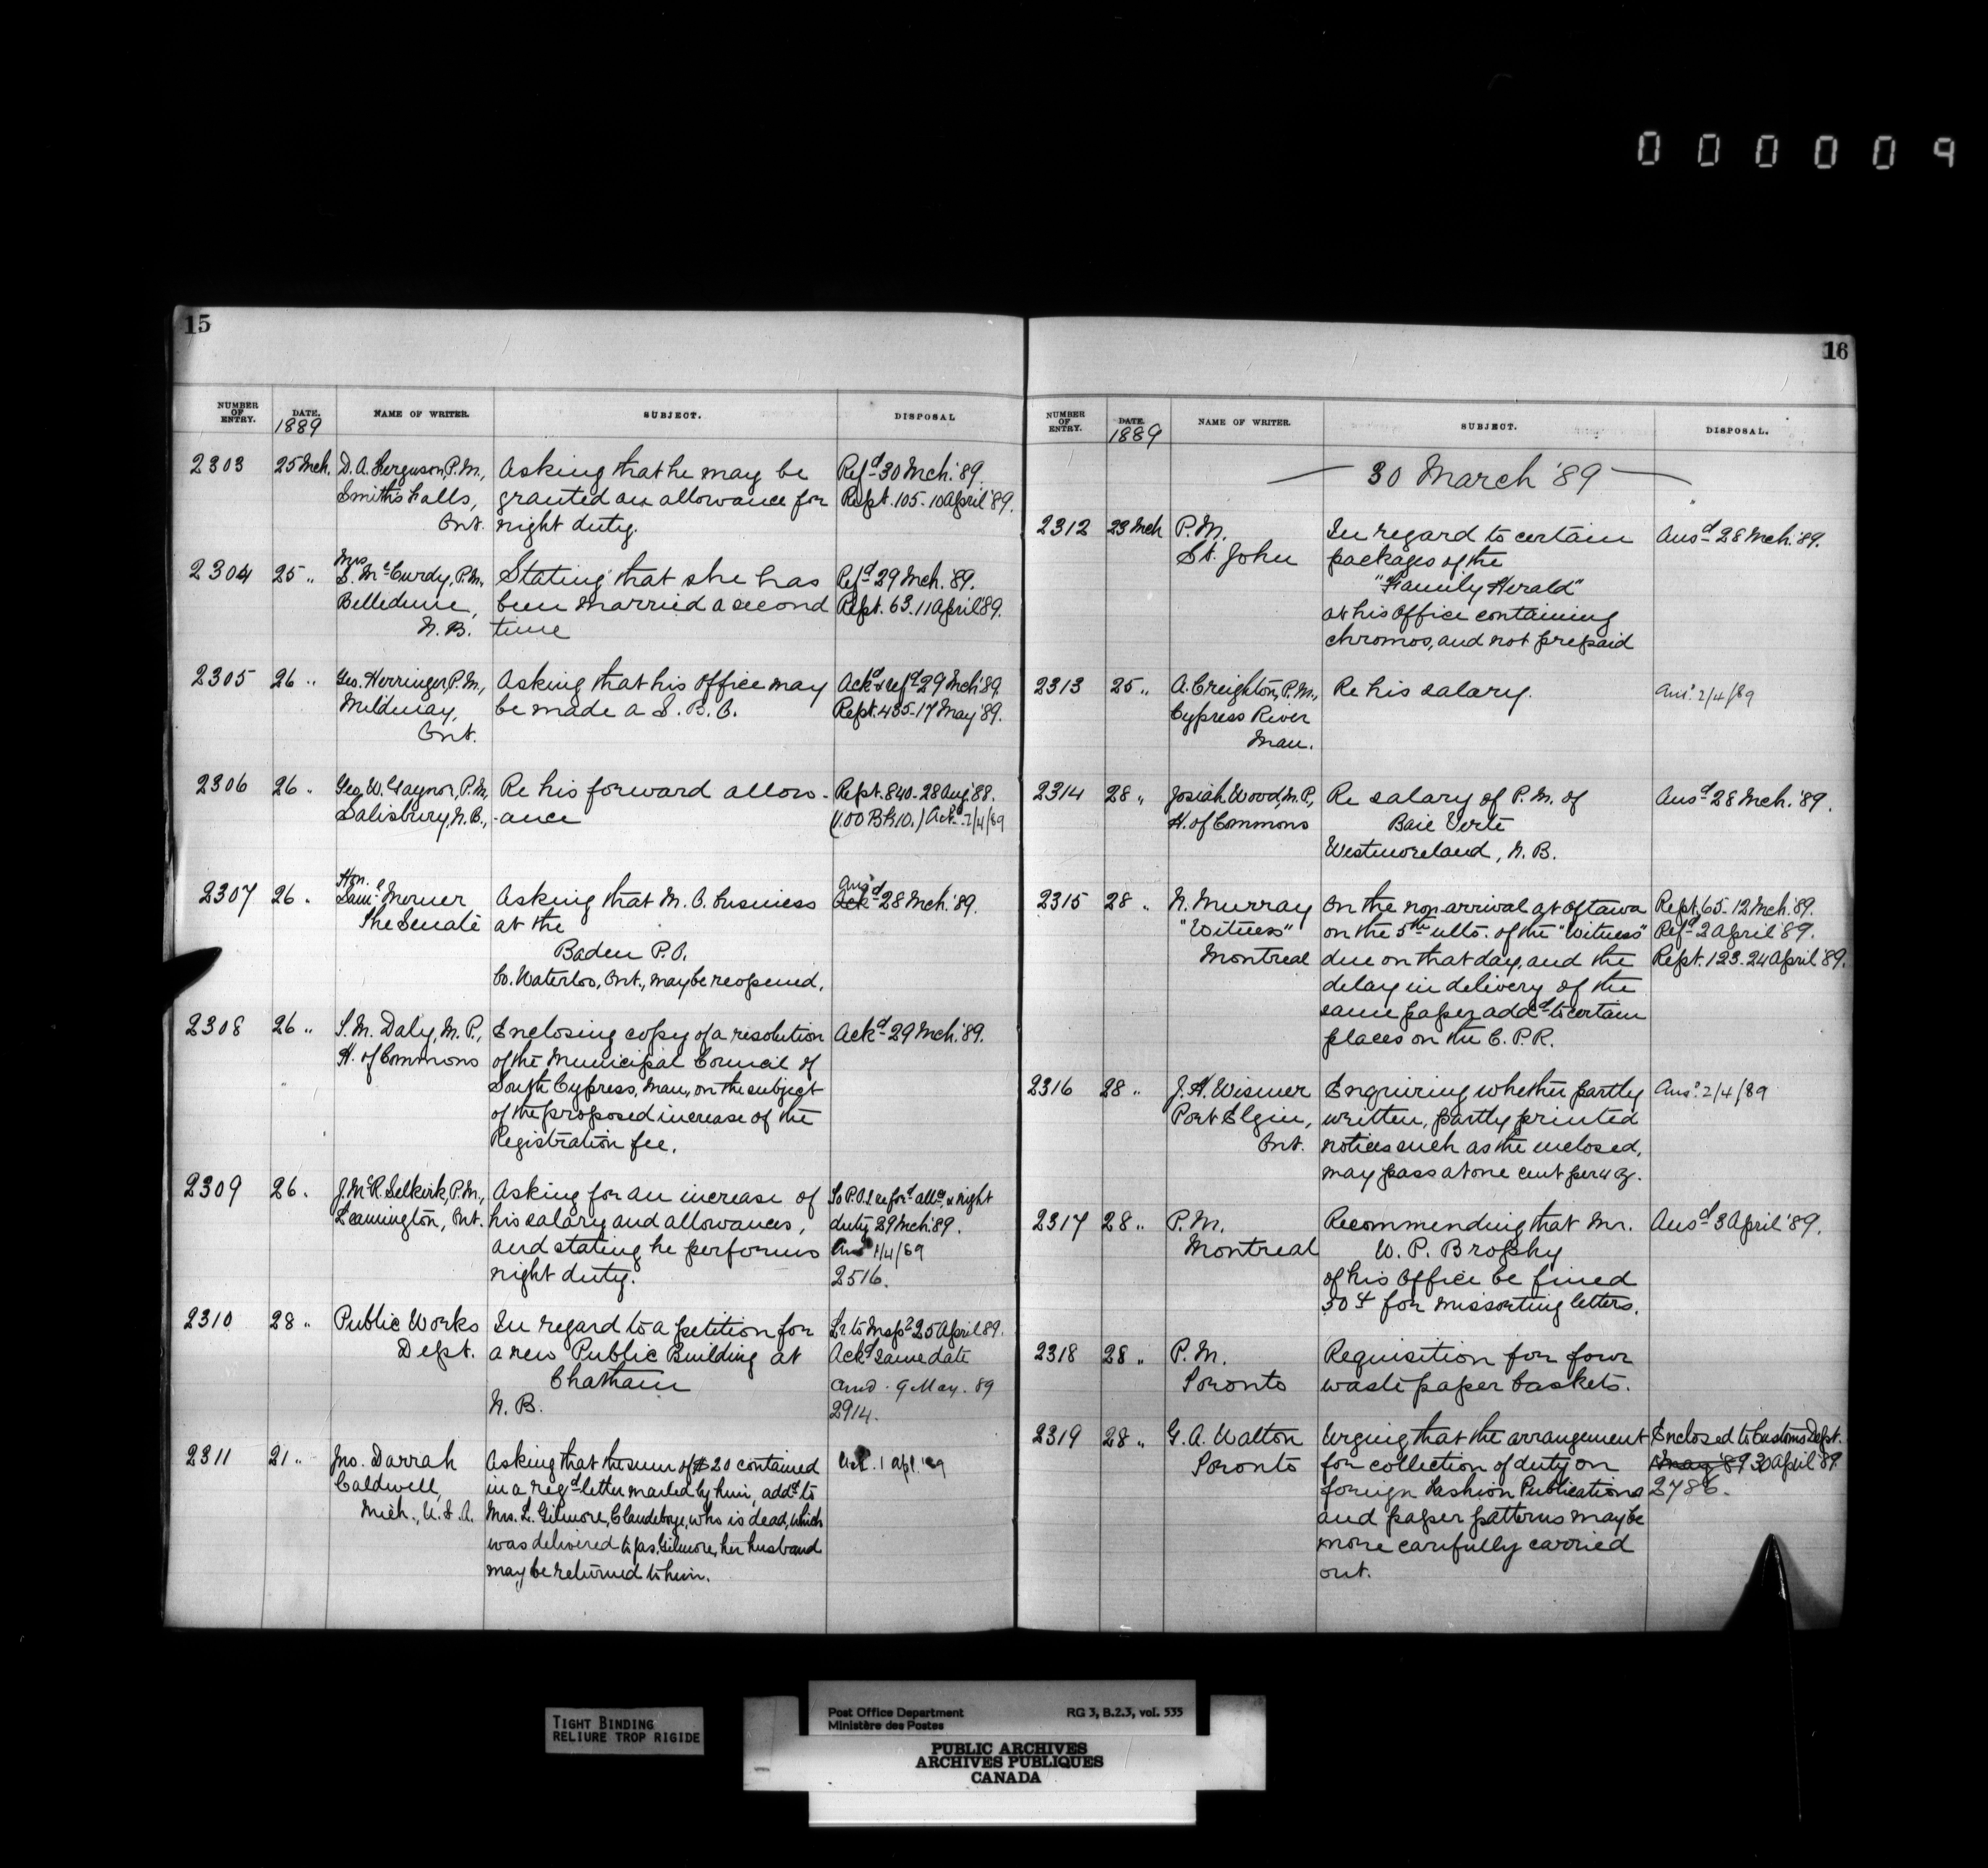 000009
15
NUMBER OF ENTRY. DATE. 1889 NAME OF WRITER. SUBJECT. DISPOSAL
2303 25 Mch. D. A. Ferguson, P.M., Asking that he may be Refd 30 Mch. '89.
Smiths Falls, granted an allowance for Rept. 105. 10 April '89.
Ont. night duty.
2304 25 " Mrs S. McCurdy, P.M. Stating that she has Refd 29 Mch. '89.
Belledune, been married a second Rept. 63. 11 April '89.
N.B. time
2305 26 " Geo. Herringer, P.M., Asking that his office may Ackd & refd 29 Mch '89.
Mildmay, be made a S. B. O. Rept. 435-17 May '89.
Ont.
2306 26 " Geo. W. Gaynor, P.M. Re his forward allow- Rept. 840-28 Aug '88.
Salisbury, N.B., -ance (1.00 Bk 10.) Ack. 2/4/89
2307 26 " Hon. Saml Merner Asking that M. O. business Ansd Ack 28 Mch. '89.
The Senate at the
Baden P.O.
Co. Waterloo, Ont., may be reopened.
2308 26 " T. M. Daly, M.P., Enclosing copy of a resolution Ackd 29 Mch. '89.
H. of Commons of the Municipal Council of
South Cypress, Man., on the subject
of the proposed increase of the
Registration fee.
2309 26 " J. McR. Selkirk, P.M., Asking for an increase of To P.O.I. re ford allce & night
Leamington, Ont. his salary and allowances, duty 29 Mch '89.
and stating he performs Ans 1/4/89
night duty. 2516.
2310 28 " Public Works In regard to a petition for Lr to Inspr 25 April 89.
Dept. a new Public Building at Ackd same date
Chatham 9 May. 89
N.B. 2914.
2311 21 " Jno. Darrah Asking that the sum of $20 contained 1 apl. '89
Caldwell, in a regd letter mailed by him, addd to
Mich., U.S.A. Mrs. L. Gilmore, Clandeboye, who is dead, which
was delivered to Jas. Gilmore, her husband
may be returned to him.
16
NUMBER OF ENTRY. DATE. 1889 NAME OF WRITER. SUBJECT. DISPOSAL.
30 March '89
2312 23 Mch P.M. In regard to certain Ansd 28 Mch. '89.
St. John packages of the
"Family Herald"
at his office containing
chromos, and not prepaid
2313 25 " A. Creighton, P.M., Re his salary. Ansd 2/4/89
Cypress River
Man.
2314 28 " Josiah Wood, M.P., Re salary of P.M. of Ansd 28 Mch. '89.
H. of Commons Baie Verte
Westmoreland, N.B.
2315 28 " N. Murray On the non arrival at Ottawa Rept. 65-12 Mch. '89.
"Witness" on the 5th ulto. of the "Witness" Refd 2 April '89.
Montreal due on that day, and the Rept. 123. 24 April '89.
delay in delivery of the
same paper addd to certain
places on the C.P.R.
2316 28 " J. H. Wismer Enquiring whether partly Ansd 2/4/89
Port Elgin, written, partly printed
Ont. notices such as the inclosed,
may pass at one cent per 4 oz.
2317 28 " P.M. Recommending that Mr. Ansd 3 April '89.
Montreal W. P. Brophy
of his Office be fined
50¢ for missorting letters.
2318 28 " P.M. Requisition for four
Toronto waste paper baskets.
2319 28 " G. A. Walton Urging that the arrangement Enclosed to Customs Dept.
Toronto for collection of duty on May '89 30 April '89.
foreign Fashion Publications 2786.
and paper patterns may be
more carefully carried
out.
TIGHT BINDING
RELIURE TROP RIGIDE
Post Office Department RG 3, B.2.3, vol. 535
Ministère des Postes
PUBLIC ARCHIVES
ARCHIVES PUBLIQUES
CANADA